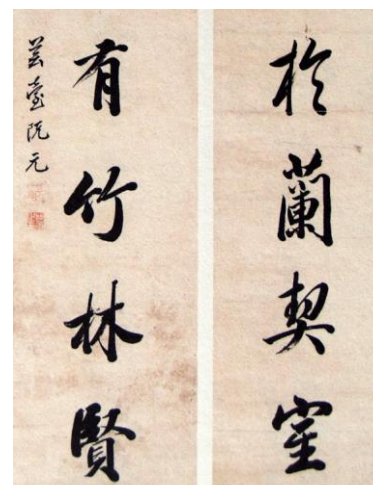 於蘭契室
有竹林賢
芸臺阮元